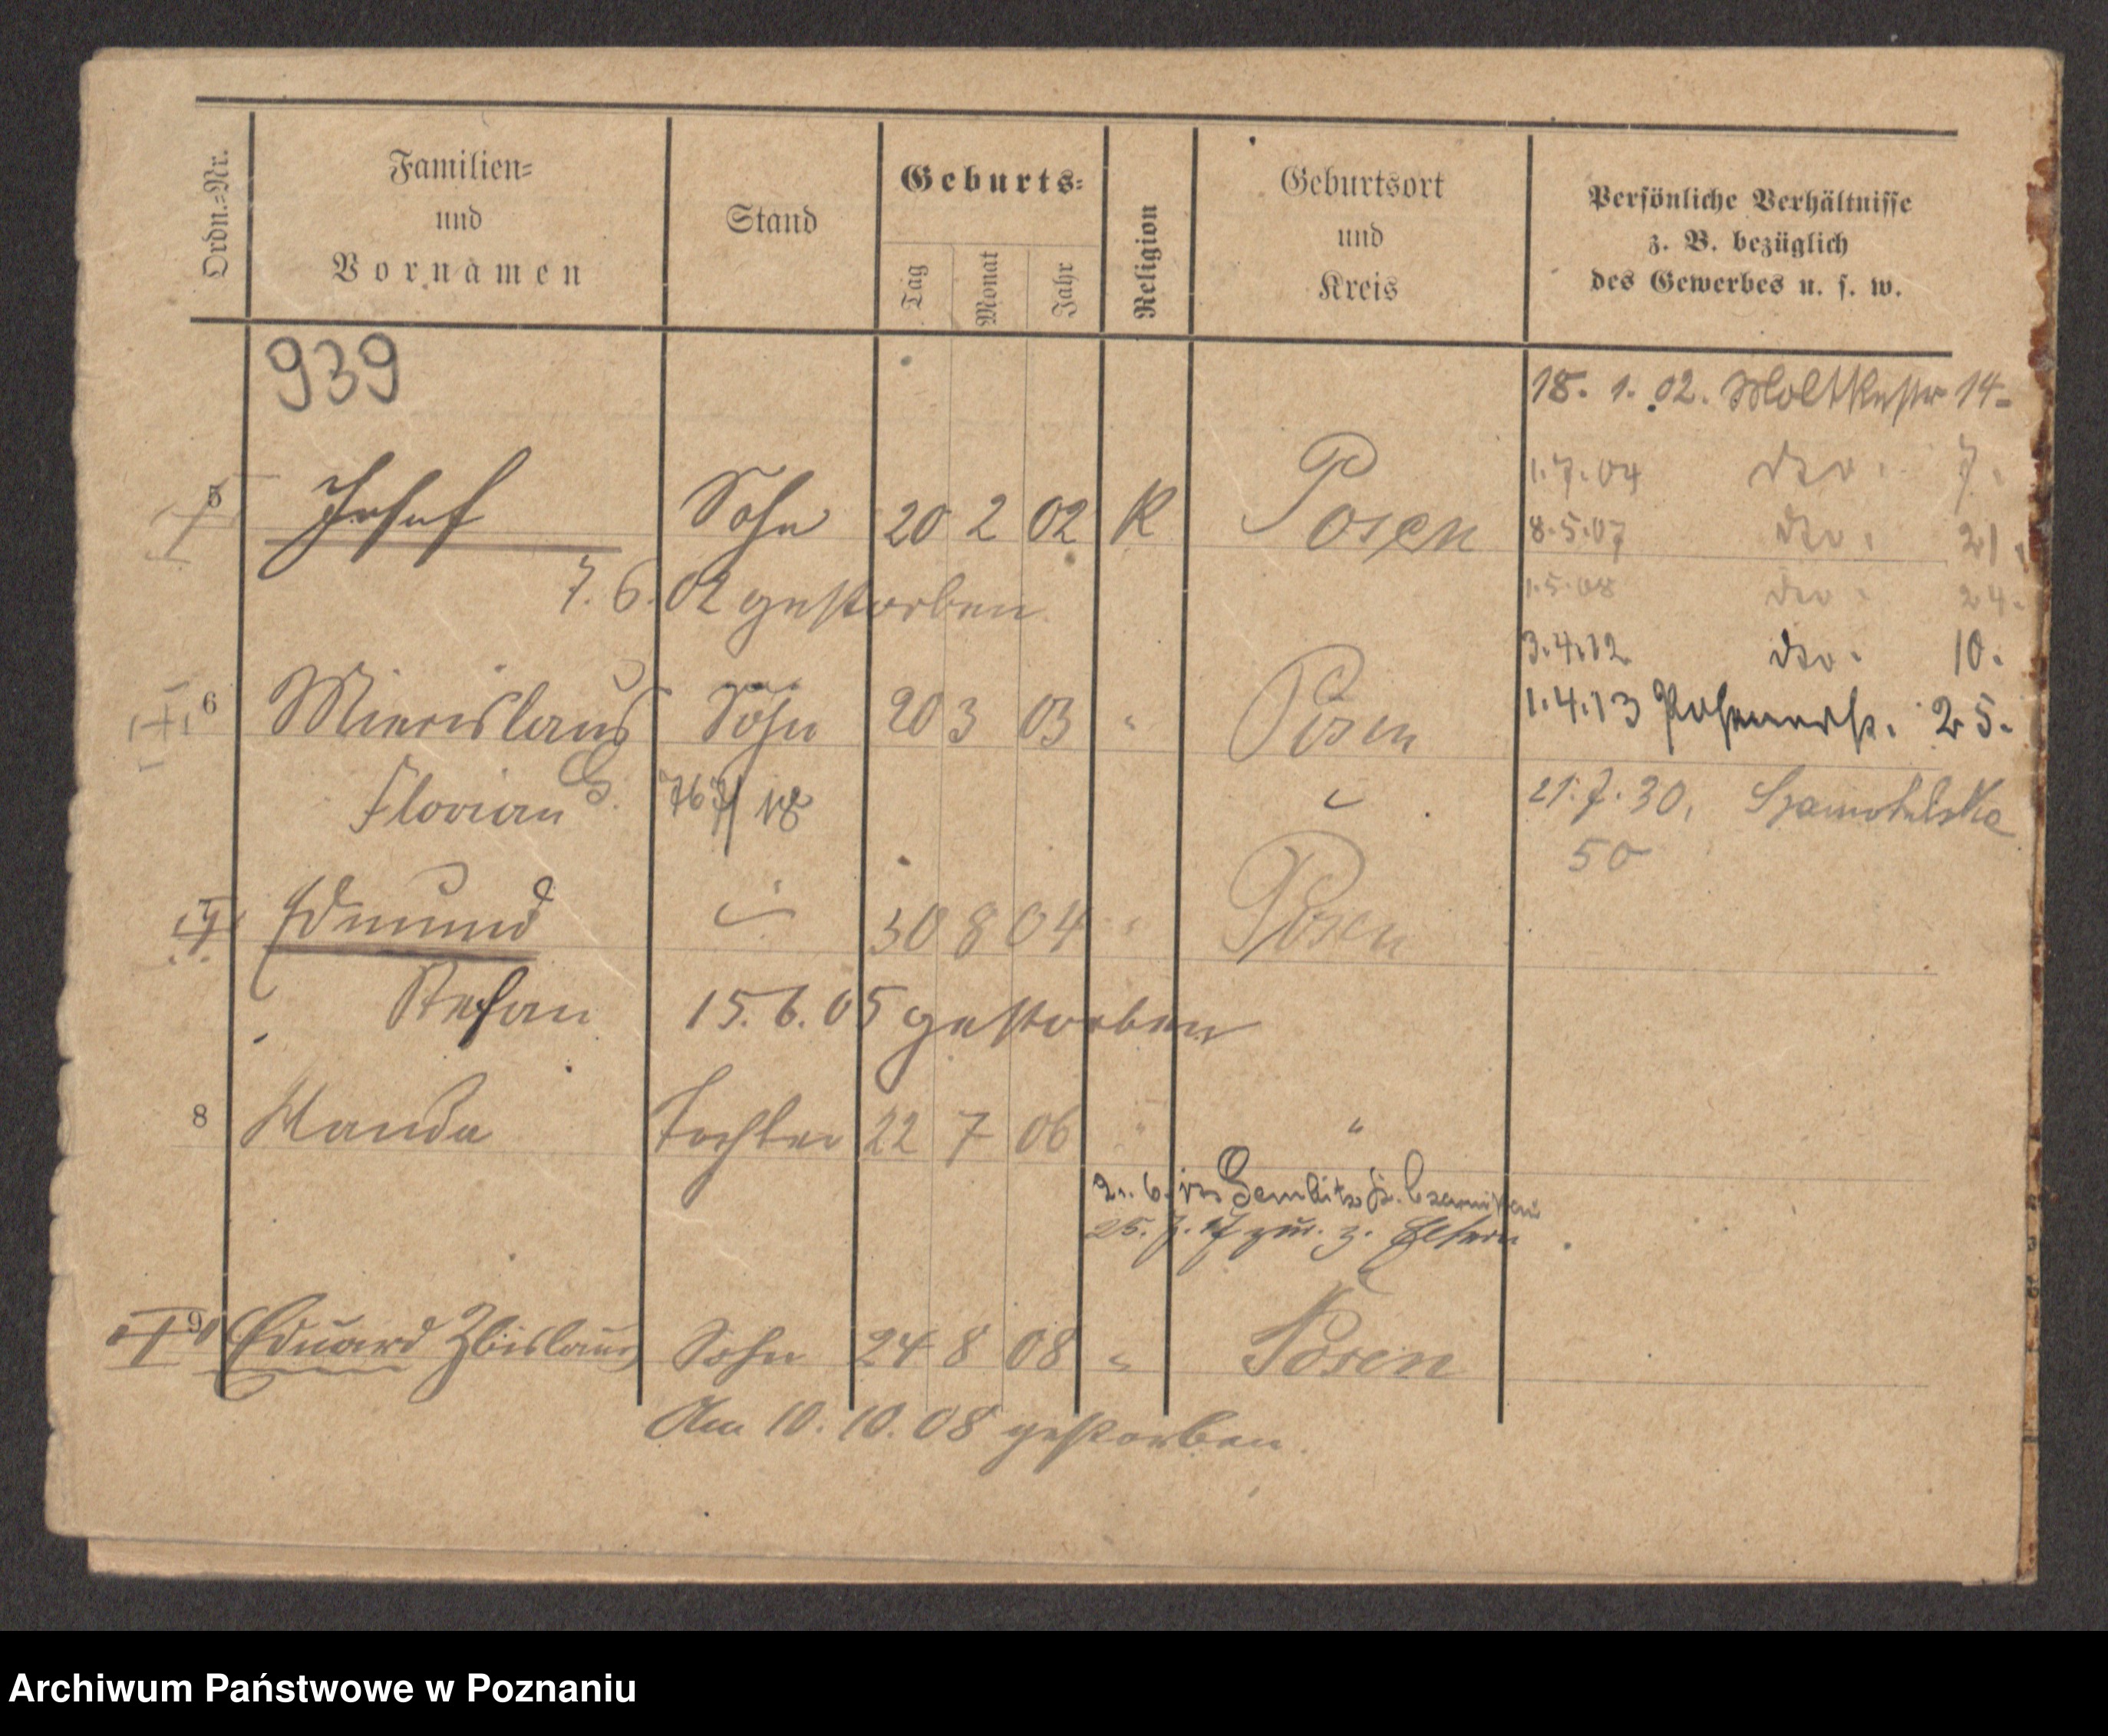 Ordn.-Nr.
Familien-
und
Vornamen
Stand
Geburts-
Tag
Monat
Jahr
Religion
Geburtsort
und
Kreis
Persönliche Verhältnisse
z. B. bezüglich
des Gewerbes u. s. w.
939
18. 1. 02. Moltkestr 14-
1.7.04 dto. 7.
5 Josef Sohn 20 2 02 K Posen
8.5.07 dto. 21.
7.6.02 gestorben
1.5.08 dto. 24.
3.4.12 dto. 10.
6 Miecislaus Sohn 20 3 03 " Posen
1.4.13 Posenerstr. 25.
Florian G.
21.7.30, Szamotulska
50
7 Edmund " 30 8 04 " Posen
Stefan 15.6.05 gestorben
8 Wanda Tochter 22 7 06 " "
Gembitz Kr. Czarnikau
25. 7. 17 zur. z. Eltern
9 Eduard Zbislaus Sohn 24 8 08 " Posen
Am 10. 10. 08 gestorben.
Archiwum Państwowe w Poznaniu